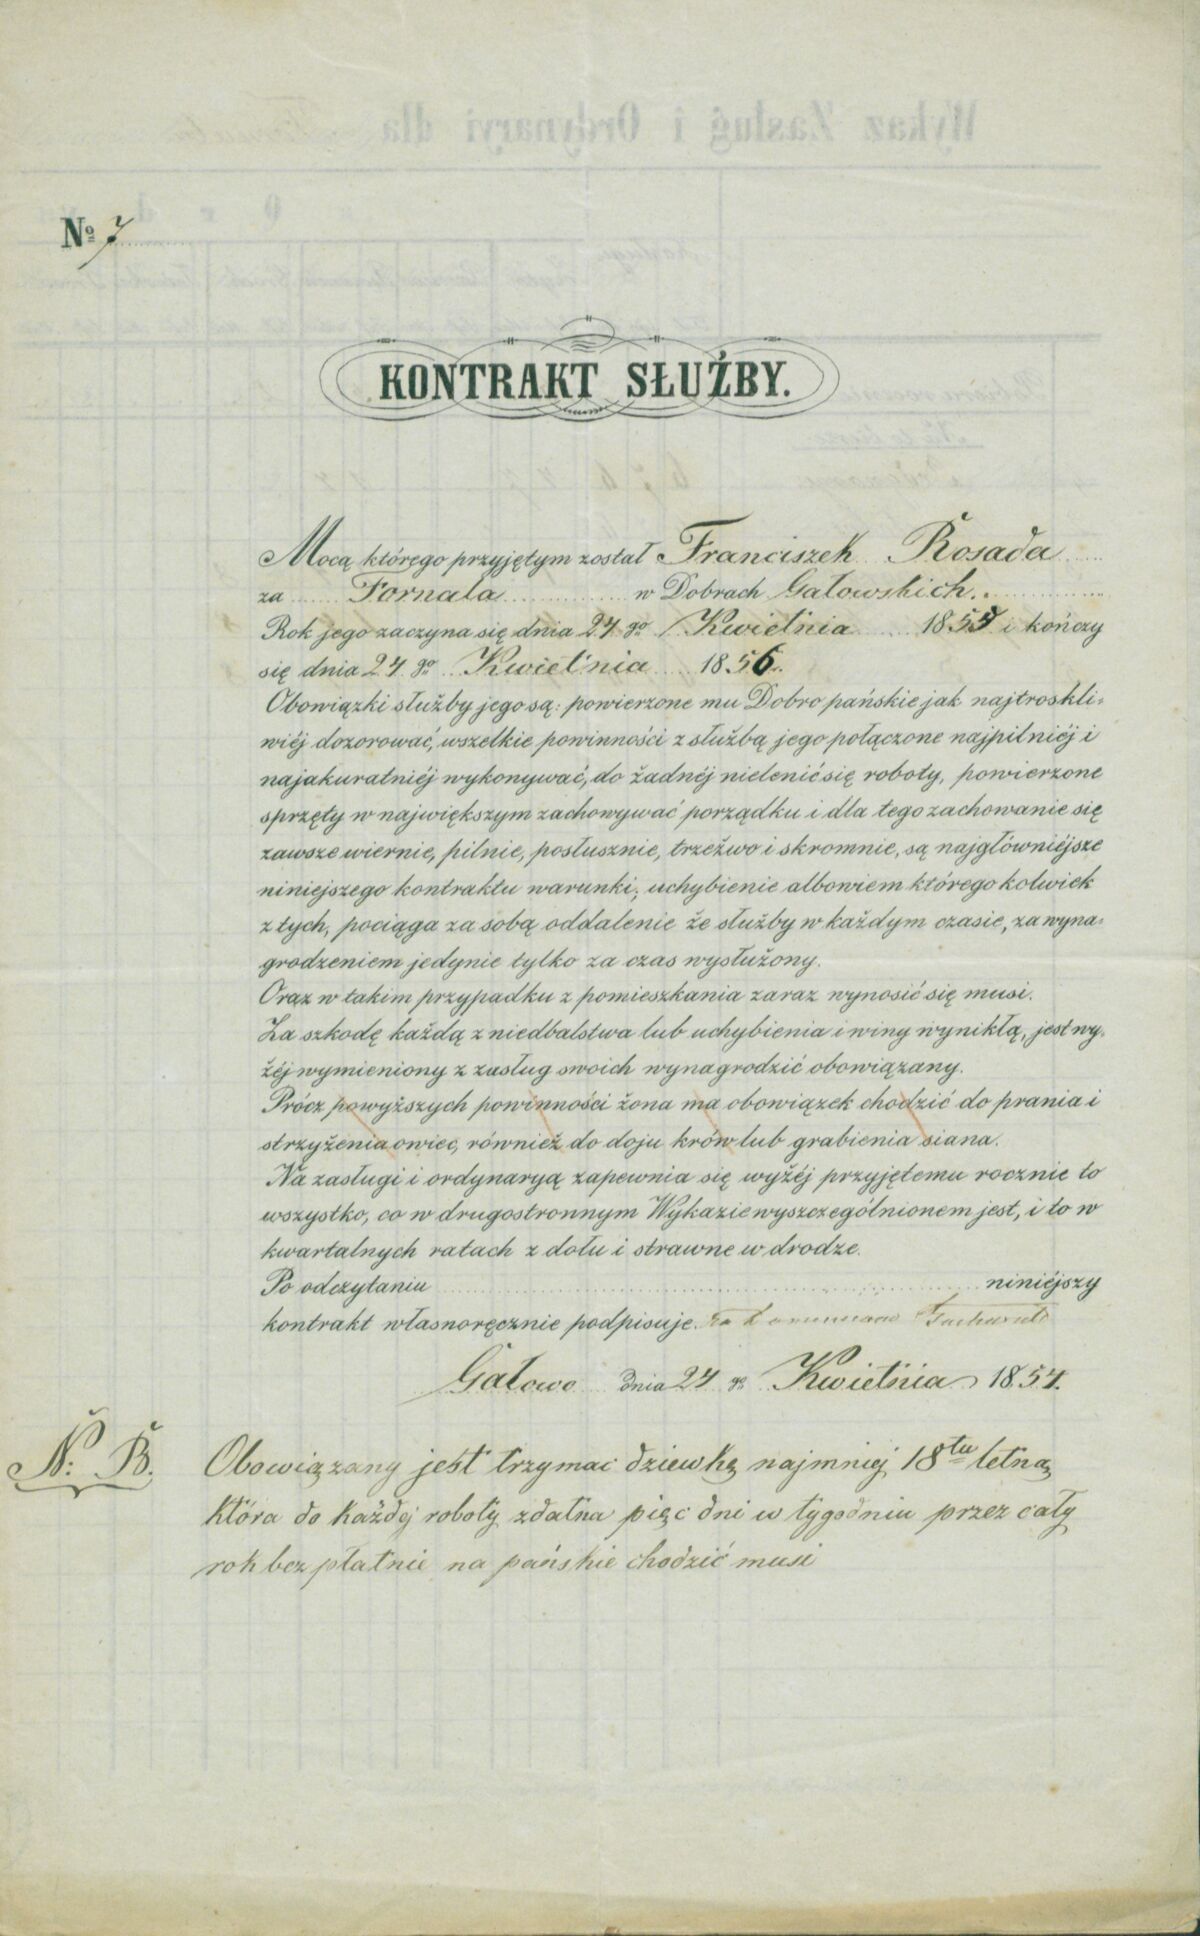 Nº 7
KONTRAKT SŁUŻBY.
Mocą którego przyjętym został Franciszek Rosada
za Fornala w Dobrach Gałowskich.
Rok jego zaczyna się dnia 24 go Kwietnia 1855 i kończy
się dnia 24 go Kwietnia 1856.
Obowiązki służby jego są: powierzone mu Dobro pańskie jak najtroskli-
wiéj dozorować, wszelkie powinności z służbą jego połączone najpilniéj i
najakuratniéj wykonywać, do żadnéj nielenić się roboty, powierzone
sprzęty w największym zachowywać porządku i dla tego zachowanie się
zawsze wiernie, pilnie, posłusznie, trzeźwo i skromnie, są najgłówniéjsze
niniejszego kontraktu warunki; uchybienie albowiem którego kolwiek
z tych, pociąga za sobą oddalenie że służby w każdym czasie, za wyna-
grodzeniem jedynie tylko za czas wysłużony.
Oraz w takim przypadku z pomieszkania zaraz wynosić się musi.
Za szkodę każdą z niedbalstwa lub uchybienia i winy wynikłą, jest wy-
żéj wymieniony z zasług swoich wynagrodzić obowiązany.
Prócz powyższych powinności żona ma obowiązek chodzić do prania i
strzyżenia owiec, również do doju krów lub grabienia siana.
Na zasługi i ordynaryą zapewnia się wyżéj przyjętemu rocznie to
wszystko, co w drugostronnym Wykazie wyszczególnionem jest, i to w
kwartalnych ratach z dołu i strawne w drodze.
Po odczytaniu niniéjszy
kontrakt własnoręcznie podpisuje.
Gałowo dnia 24 go Kwietnia 1854.
N. B. Obowiązany jest trzymac dziewkę najmniej 18tu letną
która do każdej roboty zdatna pięc dni w tygodniu przez cały
rok bez płatnie na pańskie chodzić musi